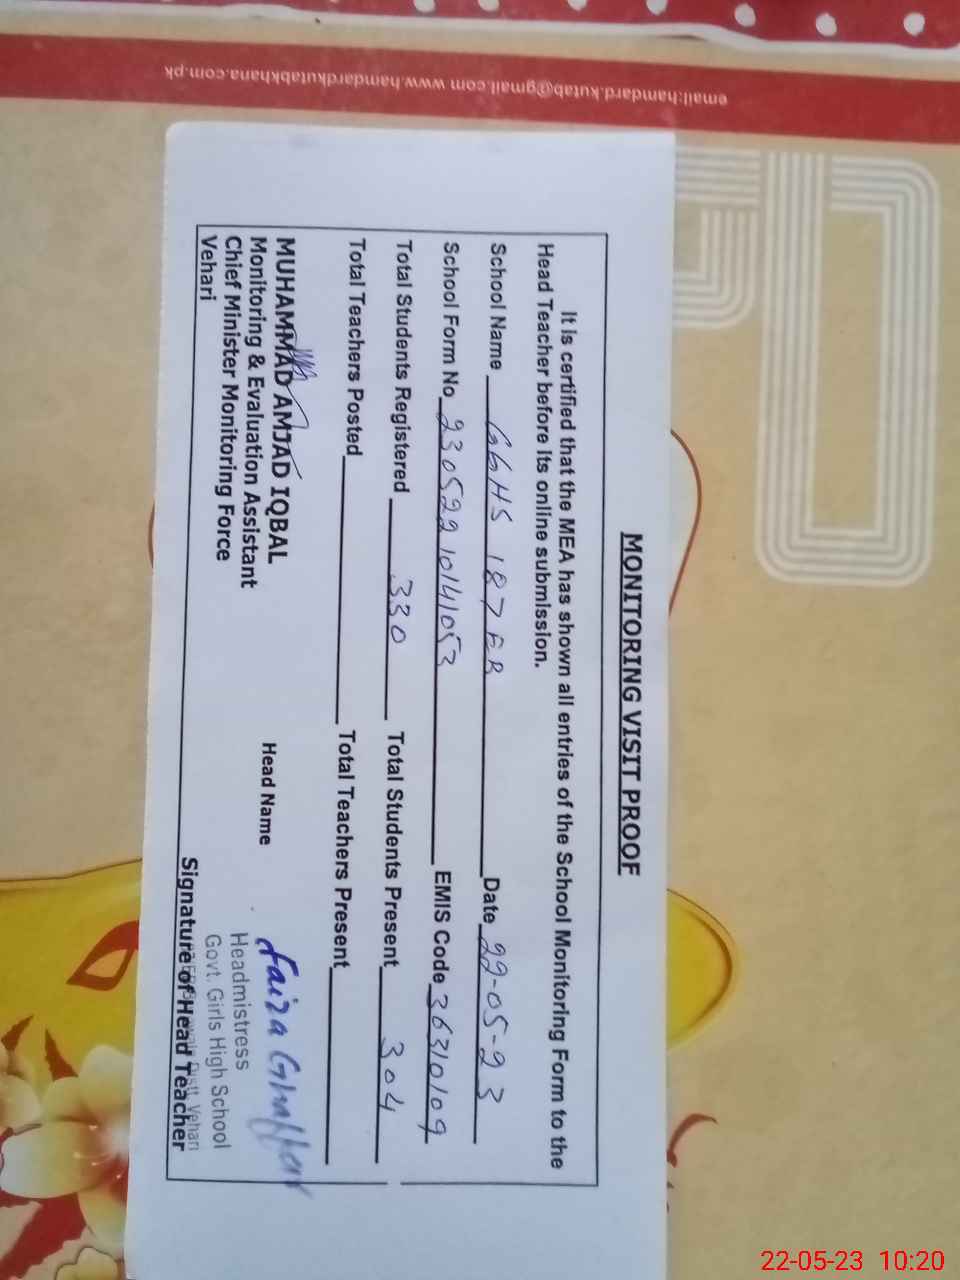 email:hamdard.kutab@gmail.com www.hamdardkutabkhana.com.pk
MONITORING VISIT PROOF
It is certified that the MEA has shown all entries of the School Monitoring Form to the
Head Teacher before its online submission.
School Name GGHS 187 EB Date 22-05-23
School Form No 23052210141053 EMIS Code 36310109
Total Students Registered 330 Total Students Present 304
Total Teachers Posted Total Teachers Present
MUHAMMAD AMJAD IQBAL
Monitoring & Evaluation Assistant
Chief Minister Monitoring Force
Vehari
Head Name Faiza Ghaffar
Headmistress
Govt. Girls High School
Distt. Vehari
Signature of Head Teacher
22-05-23 10:20